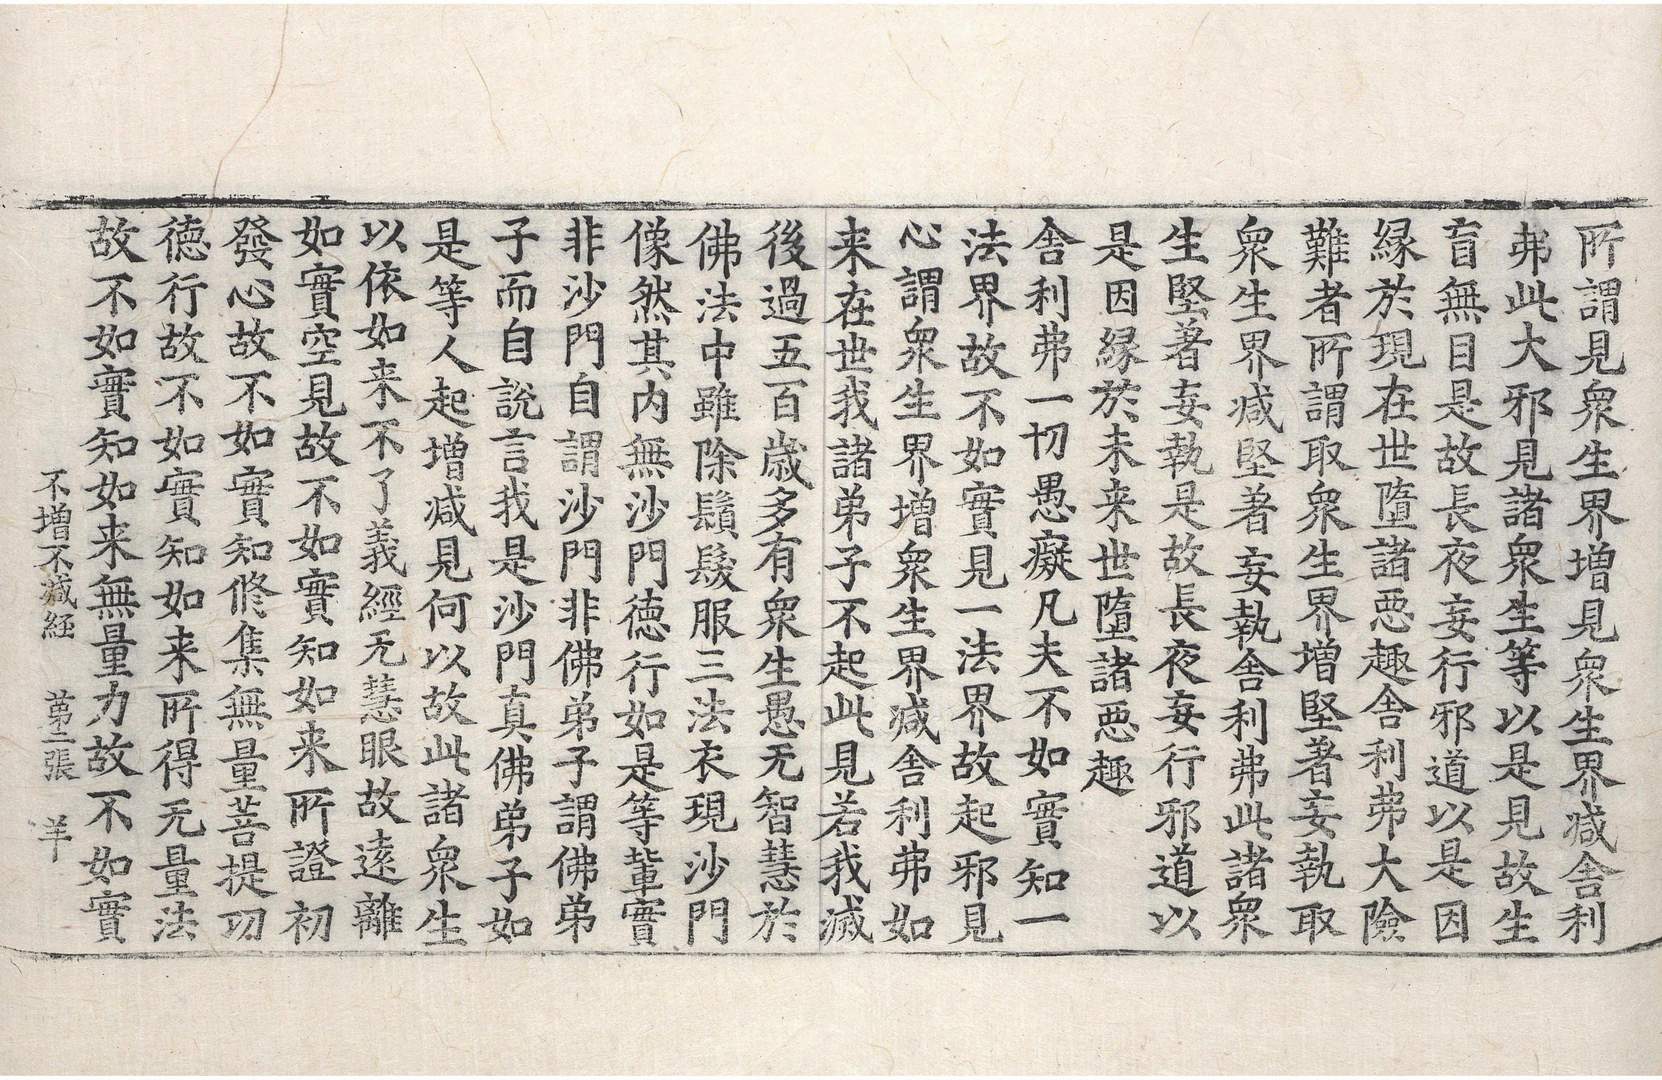 所謂見衆生界增見衆生界減舍利
弗此大邪見諸衆生等以是見故生
盲無目是故長夜妄行邪道以是因
縁於現在世墮諸惡趣舍利弗大險
難者所謂取衆生界增堅著妄執取
衆生界減堅著妄執舍利弗此諸衆
生堅著妄執是故長夜妄行邪道以
是因縁於未来世墮諸惡趣
舍利弗一切愚癡凡夫不如實知一
法界故不如實見一法界故起邪見
心謂衆生界增衆生界減舍利弗如
来在世我諸弟子不起此見若我滅
後過五百歳多有衆生愚无智慧於
佛法中雖除鬚髮服三法衣現沙門
像然其内無沙門德行如是等輩實
非沙門自謂沙門非佛弟子謂佛弟
子而自說言我是沙門真佛弟子如
是等人起增減見何以故此諸衆生
以依如来不了義經无慧眼故遠離
如實空見故不如實知如来所證初
發心故不如實知修集無量菩提功
德行故不如實知如来所得无量法
故不如實知如来無量力故不如實
不增不減経 第二張 羊